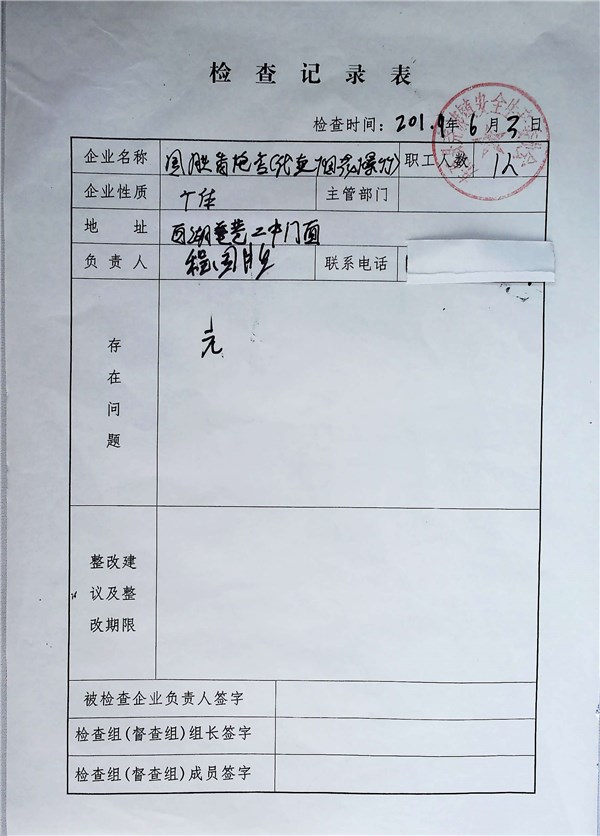 检查记录表
检查时间: 2019年6月3日
企业名称 国胜 烟花爆竹) 职工人数 12
企业性质 个体 主管部门
地址 西湖 二中门面
负责人 程国胜 联系电话
存在问题 无
整改建
议及整
改期限
被检查企业负责人签字
检查组(督查组)组长签字
检查组(督查组)成员签字